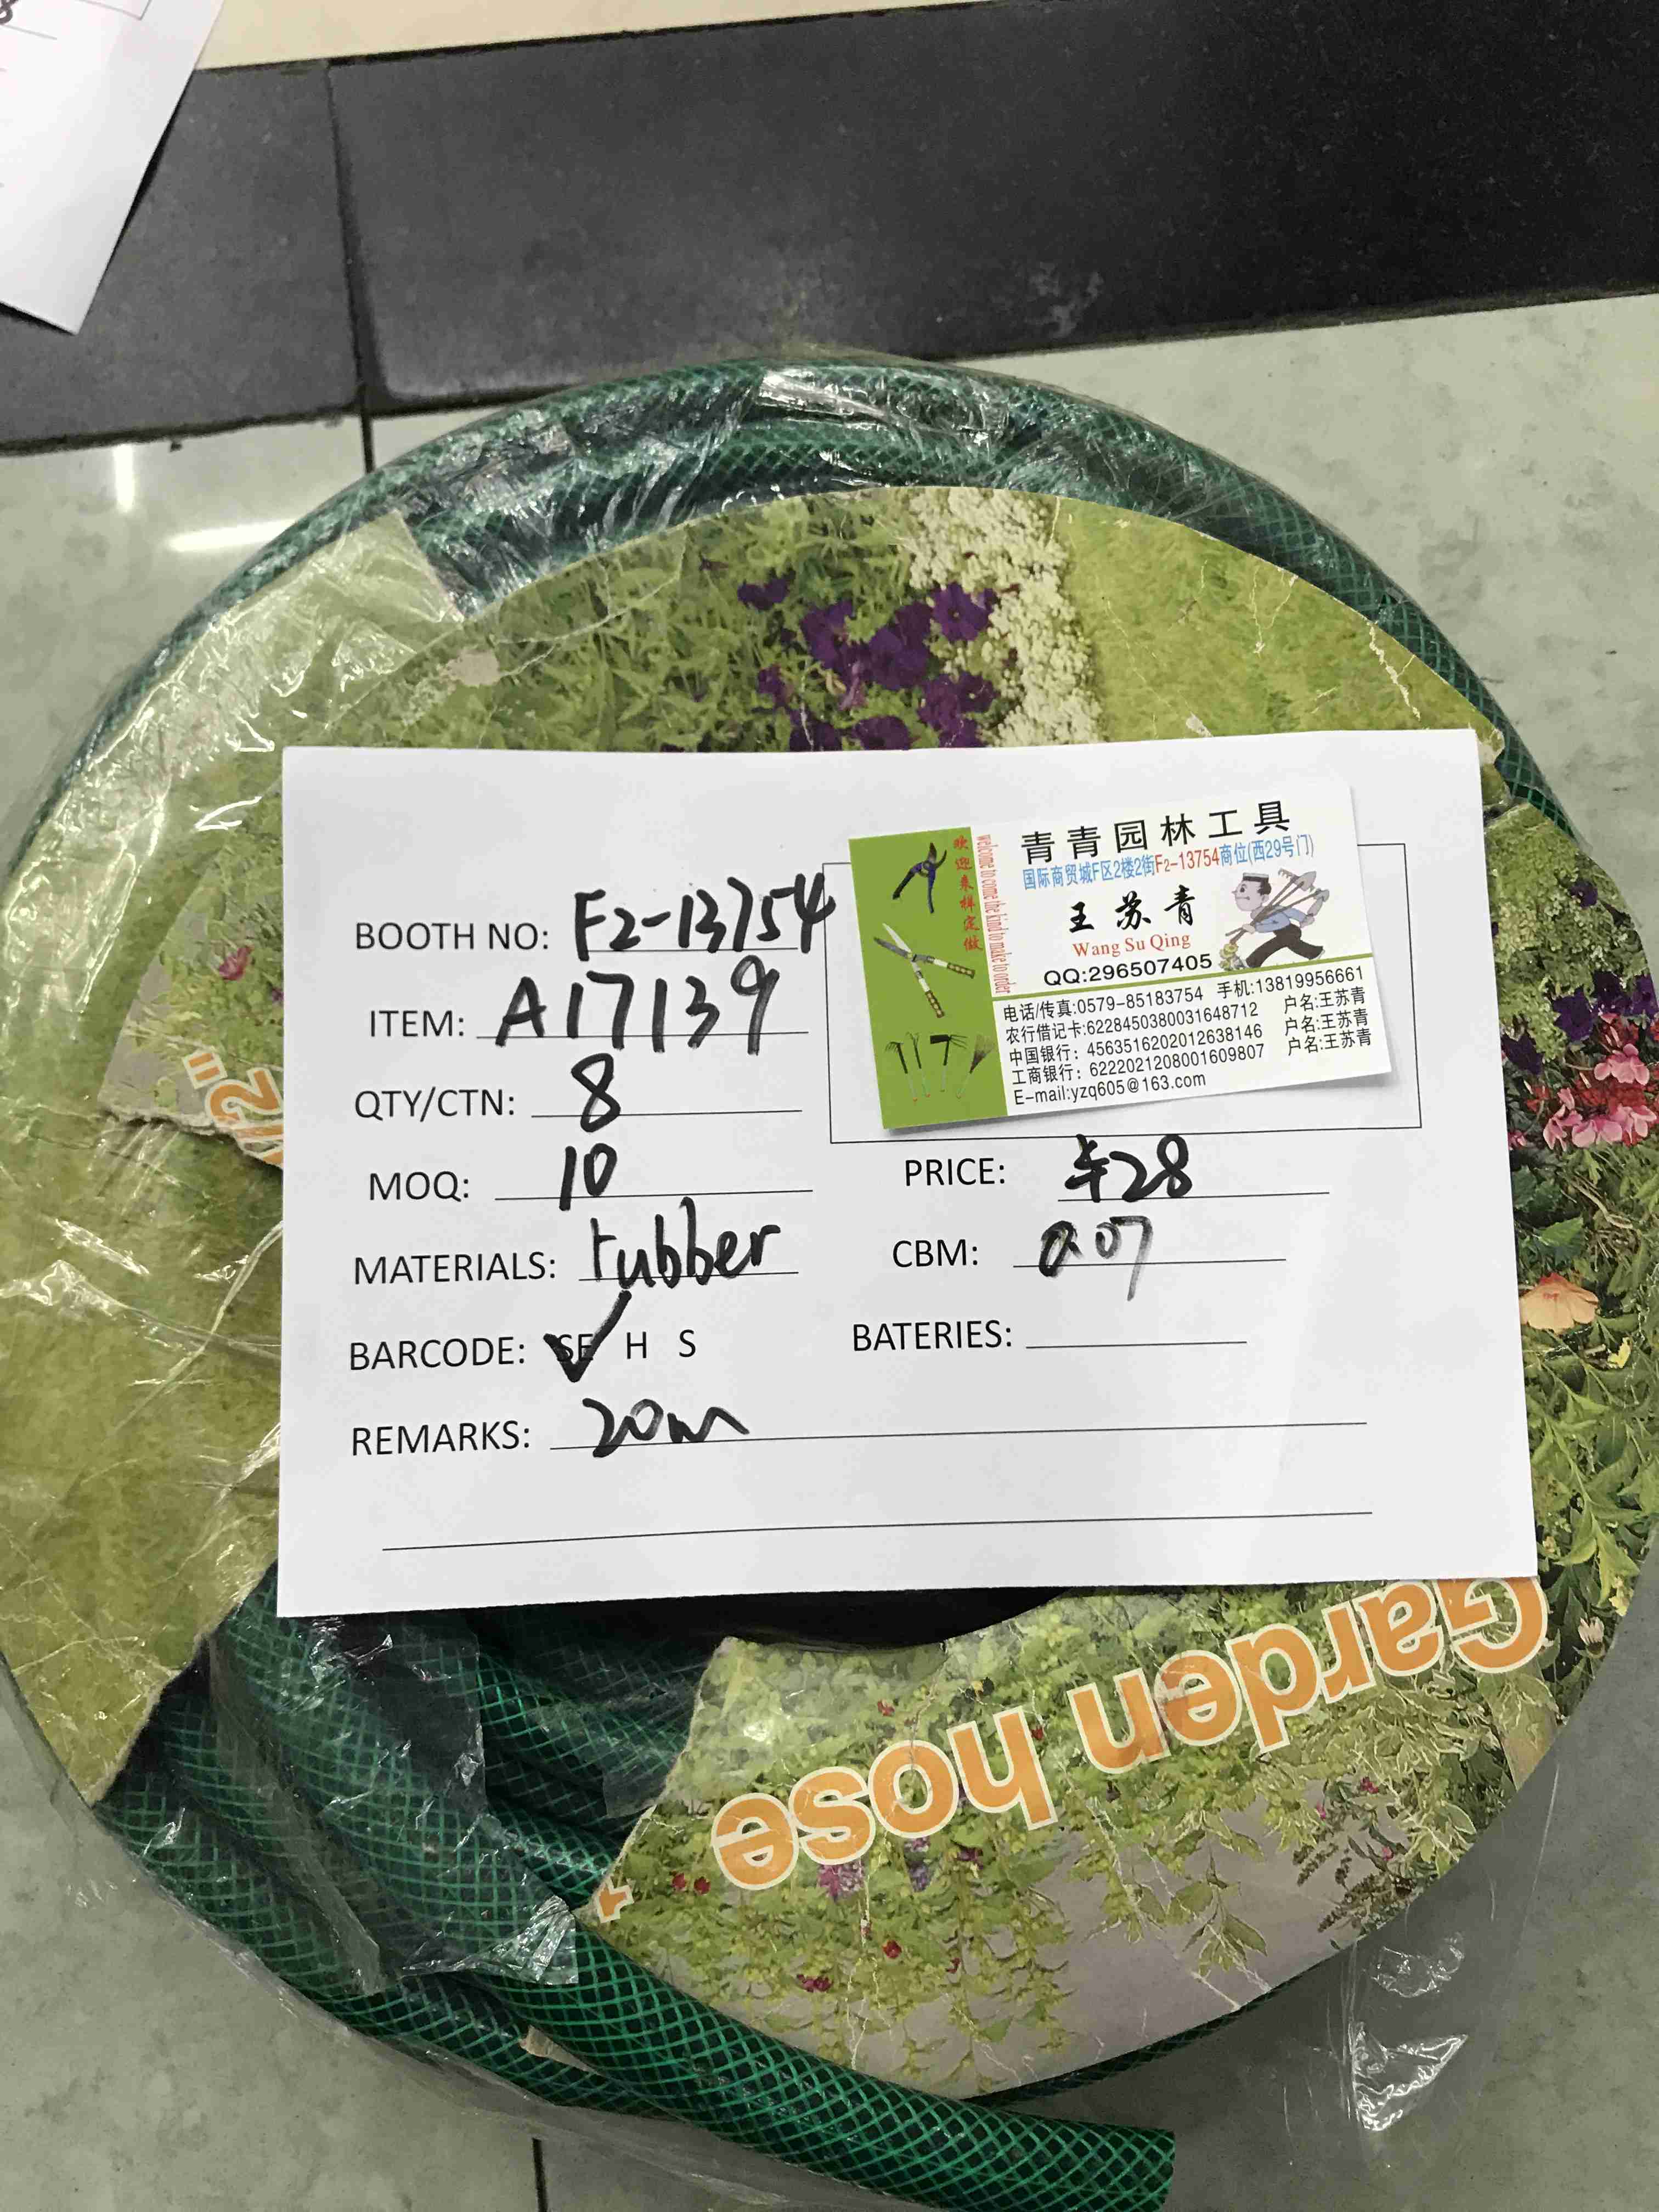 BOOTH NO: F2-13754
ITEM: A17139
QTY/CTN: 8
MOQ: 10
MATERIALS: rubber
BARCODE: SE H S
REMARKS: 20m
PRICE: ¥28
CBM: 0.07
BATERIES:
欢迎来样定做
welcome to come the kind to make to order
青青园林工具
国际商贸城F区2楼2街F2-13754商位(西29号门)
王苏青
Wang Su Qing
QQ:296507405
电话/传真:0579-85183754 手机:13819956661
农行借记卡:6228450380031648712 户名:王苏青
中国银行: 4563516202012638146 户名:王苏青
工商银行: 6222021208001609807 户名:王苏青
E-mail:yzq605@163.com
1/2"
Garden hose